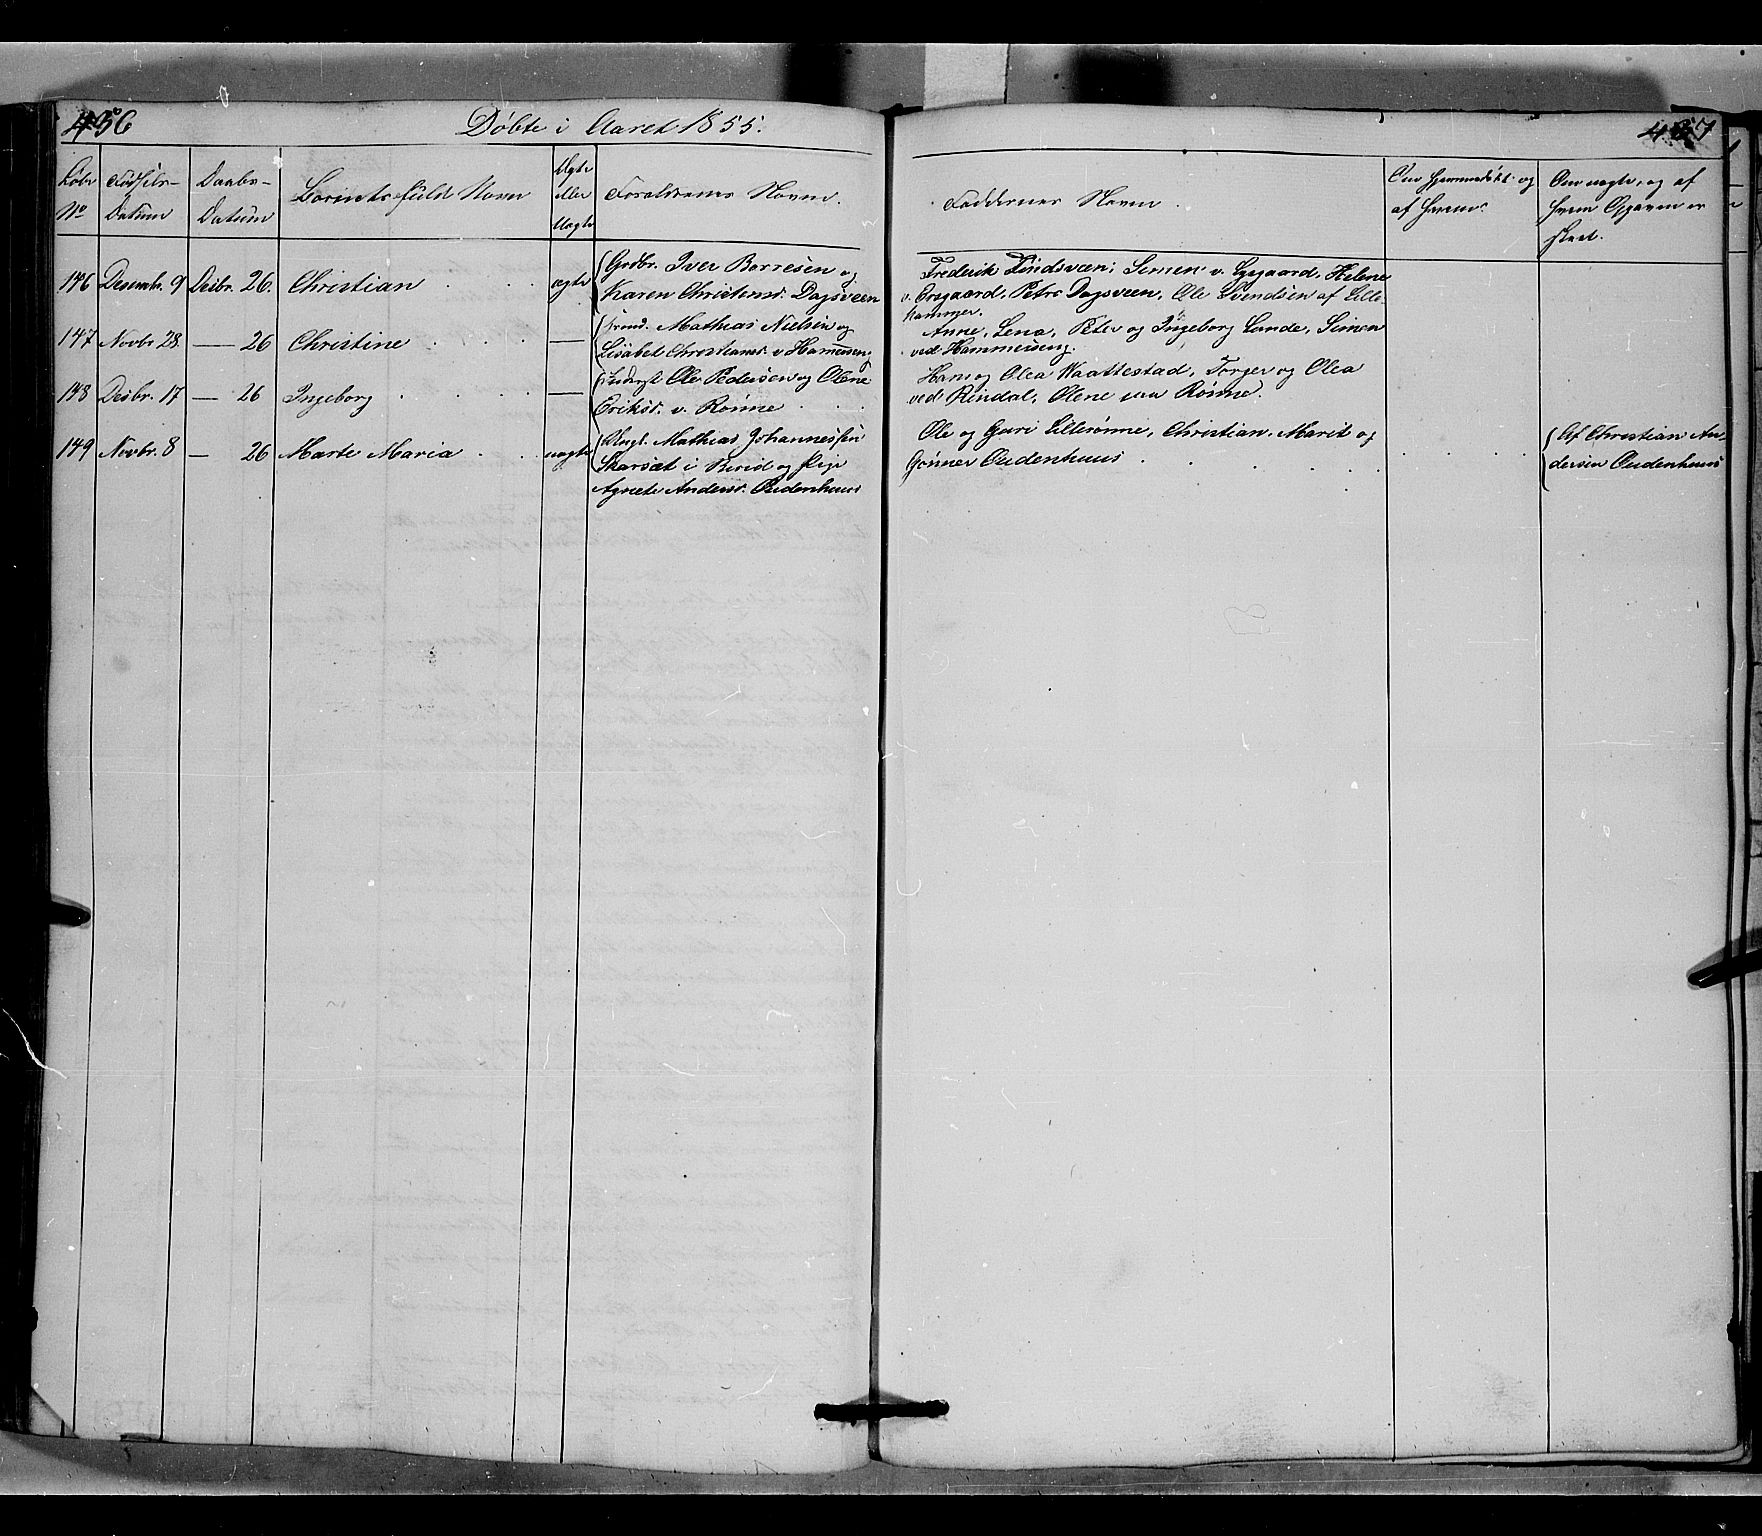 456
Døbte i Aaret 1855.
457
Løbe No
Fødsels-Datum
Daabs-Datum
Barnets fulde Navn
Ægte eller Uægte
Forældrenes Navne.
Faddernes Navne.
Om hjemmedøbt og af hvem.
Om uægte, og af hvem Opgaven er skeet.
146 Decembr. 9 Decbr. 26. Christian ægte Grdbr. Iver Borresen og
Karen Christensd. Dagsveen
Frederik Lindsveen, Simen v. Lysgaard, Helene
v. Orsgaard, Petra Dagsveen, Ole Svendsen af Lille-
hammer.
147 Novbr 28. — 26 Christine — Mathias Nielsen og
Lisabet Christiansd. v Hammeseng
Anne, Lena, Peter og Ingeborg Lunde, Simen
ved Hammeseng.
148 Decbr. 17 — 26 Ingeborg — Inderst Ole Pedersen og Olene
Eriksd. v. Rønne
Hans og Olea Kaattestad, Torger og Olea
ved Rindal, Olene paa Rønne.
149 Novbr. 8 — 26 Marte Maria uægte Ungk. Mathias Johannessen
Skarsæt i Birid og Pige
Agnete Andersd. Oudenhuus
Ole og Guri Lillerønne, Christian, Marit og
Gønner Oudenhuus
Af Christian An-
dersen Oudenhuus